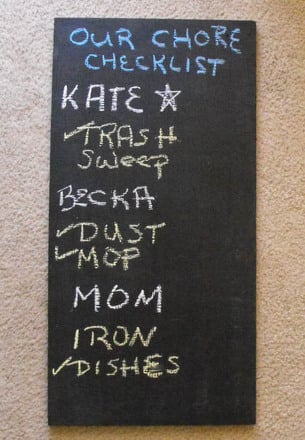 OUR CHORE
CHECKLIST
KATE ☆
✓TRASH
Sweep
BECKA
✓DUST
✓MOP
MOM
IRON
✓DISHES